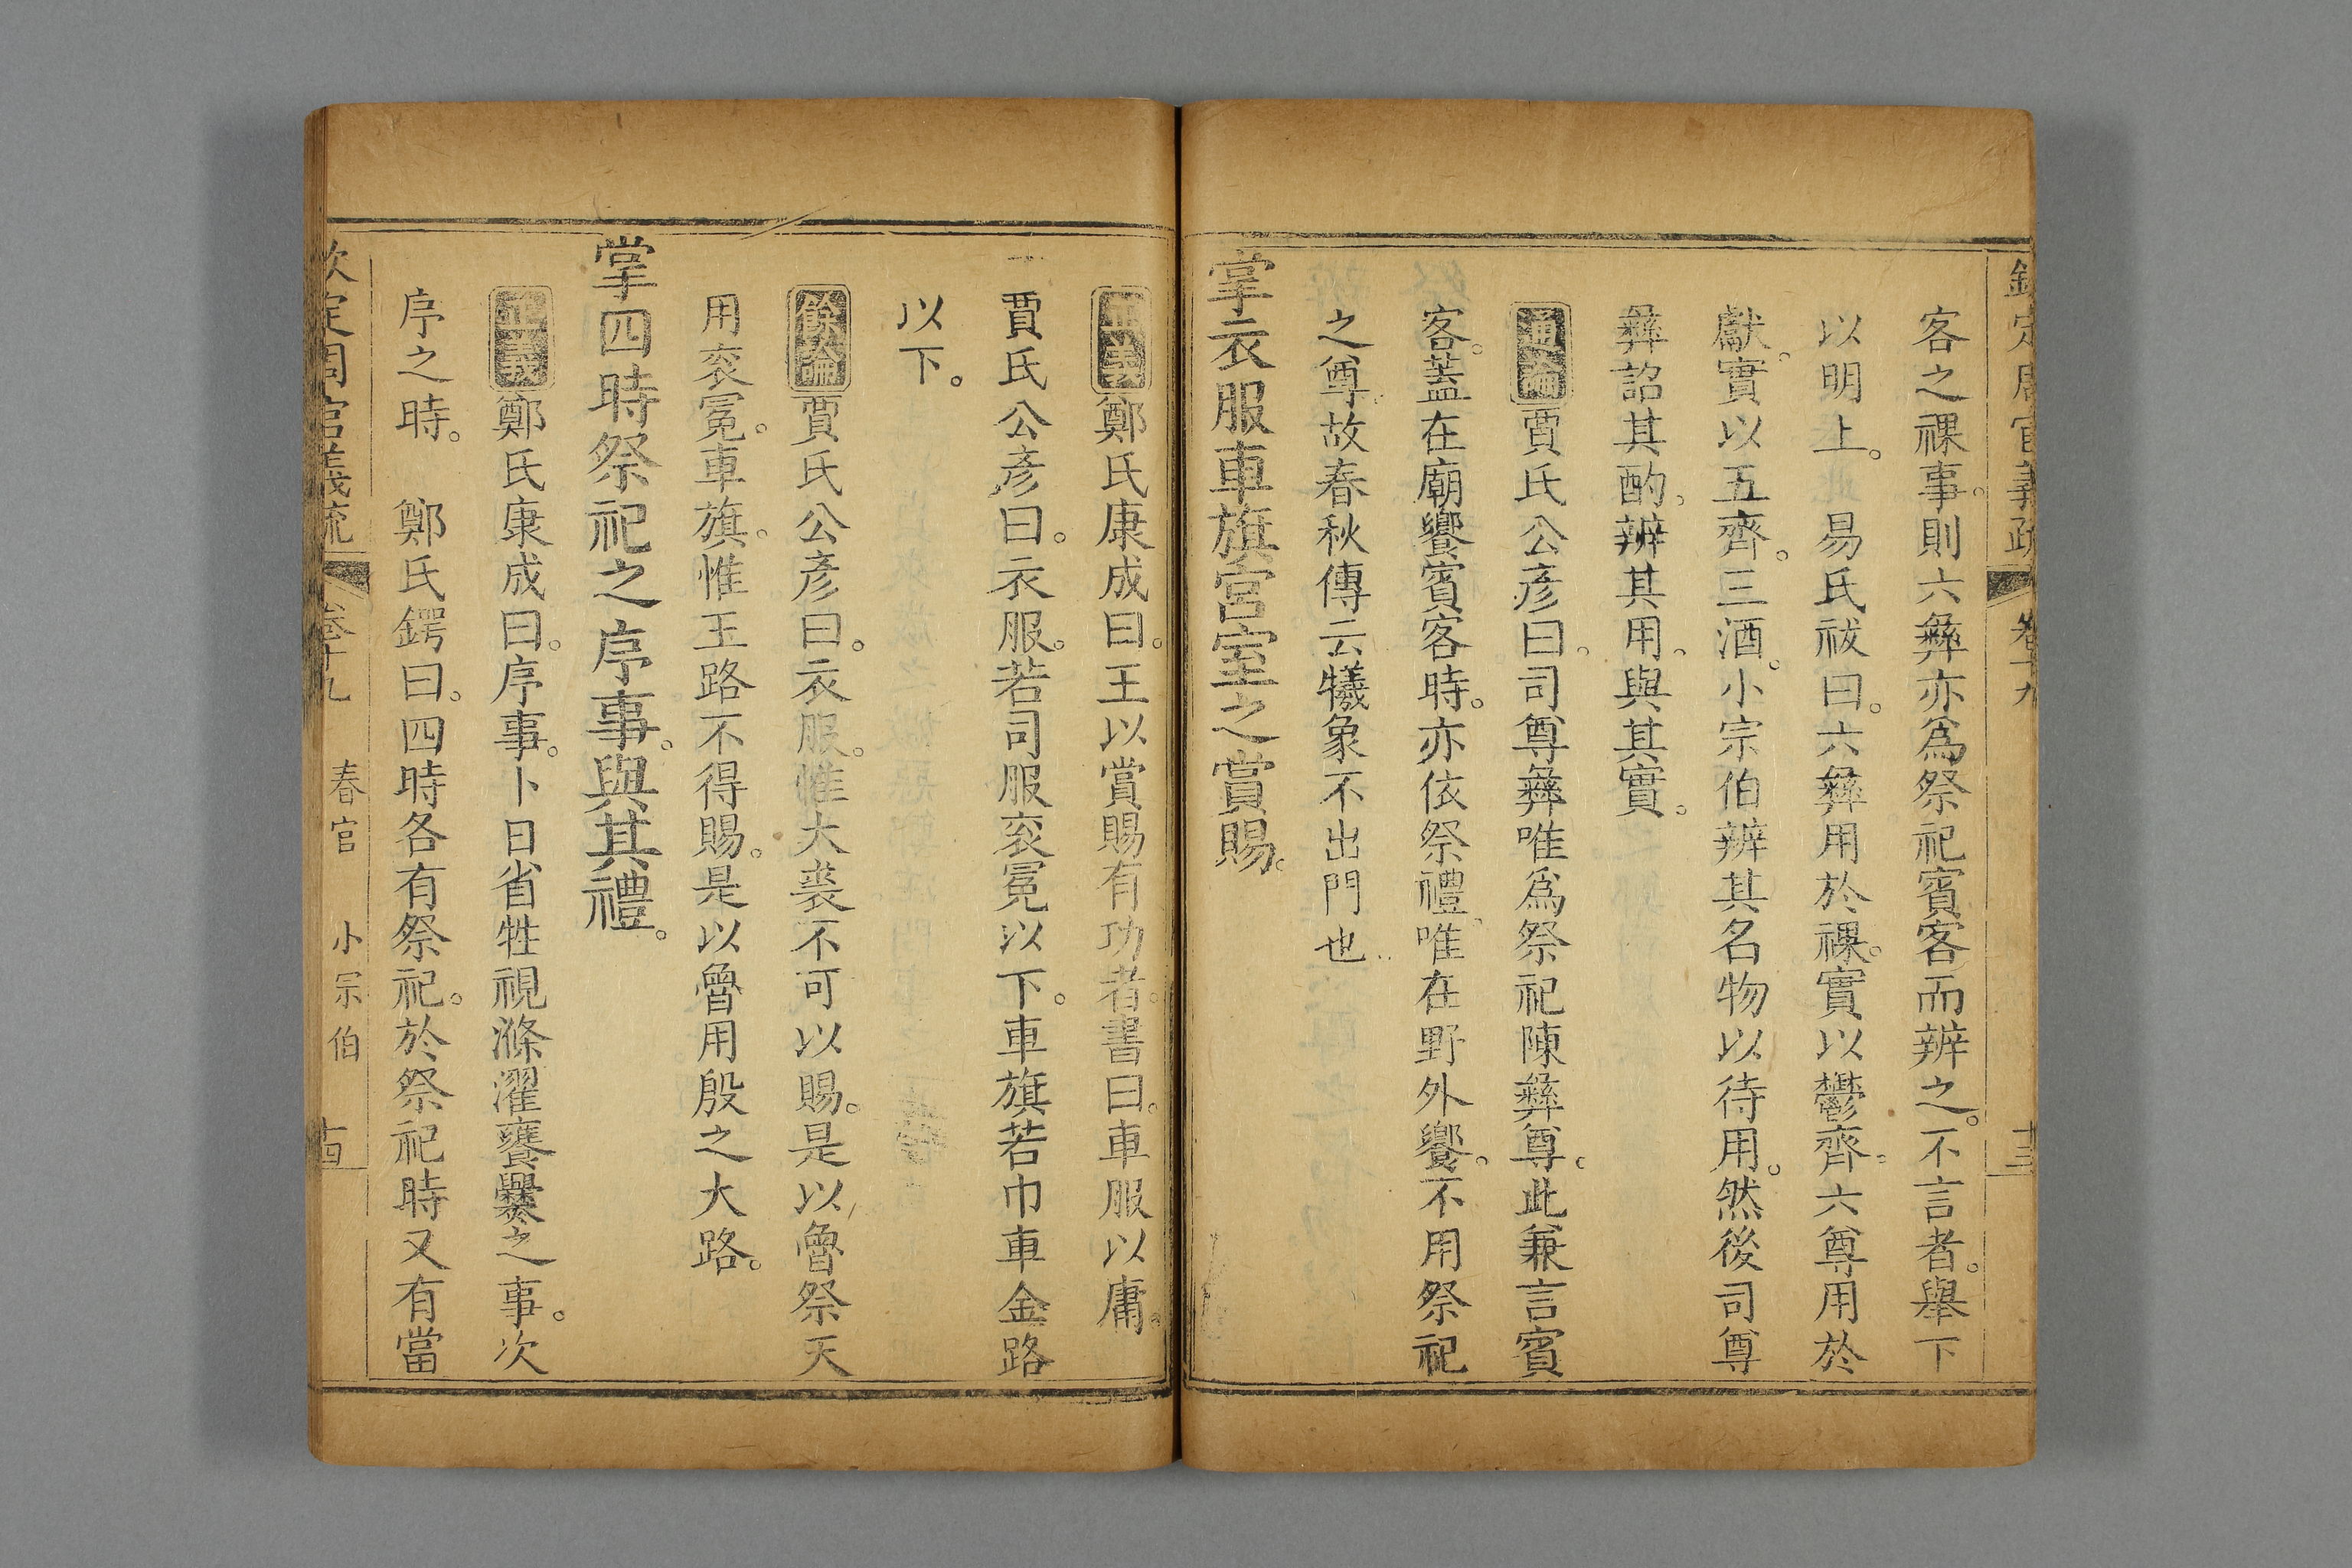 欽定周官義疏 卷十九 十三
客之祼事。則六彝亦爲祭祀賓客而辨之。不言者。舉下
以明上。 易氏祓曰。六彝用於祼。實以鬱齊。六尊用於
獻。實以五齊。三酒。小宗伯辨其名物以待用。然後司尊
彝詔其酌。辨其用。與其實。
通論 賈氏公彥曰。司尊彝唯爲祭祀陳彝尊。此兼言賓
客。蓋在廟饗賓客時。亦依祭禮。唯在野外饗。不用祭祀
之尊。故春秋傳云犧象不出門也
掌衣服車旗宮室之賞賜。
正義 鄭氏康成曰。王以賞賜有功者。書曰。車服以庸。
賈氏公彥曰。衣服。若司服衮冕以下。車旗若巾車金路
以下。
餘論 賈氏公彥曰。衣服。惟大裘不可以賜。是以魯祭天
用衮冕。車旗。惟王路不得賜。是以魯用殷之大路。
掌四時祭祀之序事。與其禮。
正義 鄭氏康成曰。序事。卜日省牲視滌濯饔爨之事。次
序之時。 鄭氏鍔曰。四時各有祭祀。於祭祀時又有當
欽定周官義疏 卷十九 春官 小宗伯 十四